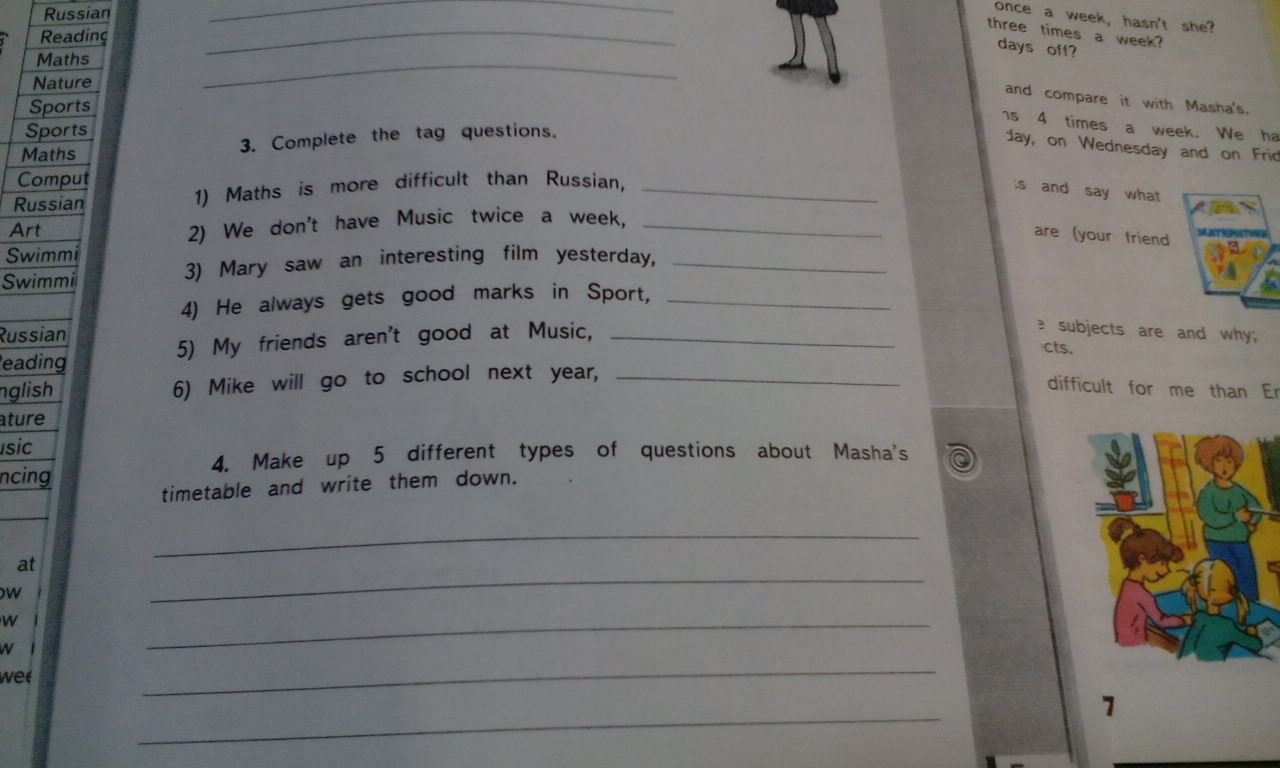 Russian
Reading
Maths
Nature
Sports
Sports
Maths
Comput
Russian
Art
Swimmi
Swimmi
Russian
eading
nglish
ature
usic
ncing
at
ow
ow
w
wee
3. Complete the tag questions.
1) Maths is more difficult than Russian,
2) We don't have Music twice a week,
3) Mary saw an interesting film yesterday,
4) He always gets good marks in Sport,
5) My friends aren't good at Music,
6) Mike will go to school next year,
4. Make up 5 different types of questions about Masha's
timetable and write them down.
once a week, hasn't she?
three times a week?
days off?
and compare it with Masha's.
ns 4 times a week. We ha
day, on Wednesday and on Frid
s and say what
are (your friend
subjects are and why;
cts.
difficult for me than En
7